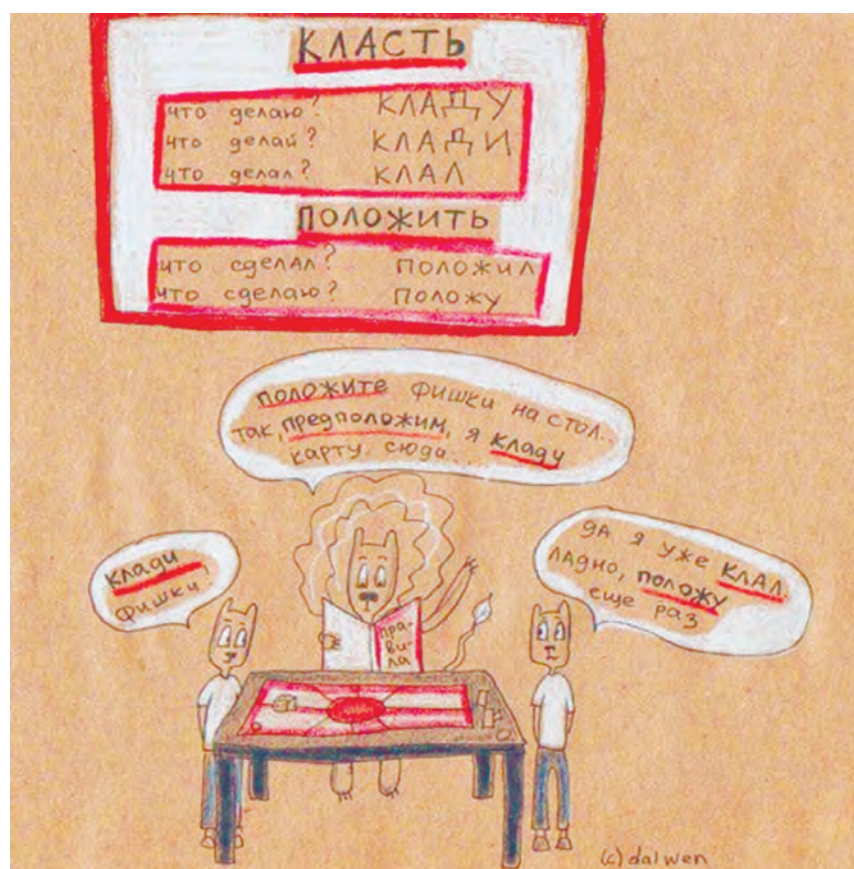 КЛАСТЬ
что делаю? КЛАДУ
что делай? КЛАДИ
что делал? КЛАЛ
ПОЛОЖИТЬ
что сделал? ПОЛОЖИЛ
что сделаю? ПОЛОЖУ
ПОЛОЖИТЕ фишки на стол..
так, предположим, я кладу
карту сюда...
клади
фишки!
да я уже клал
ладно, положу
еще раз
пра-
ви-
ла
(c) dalwen